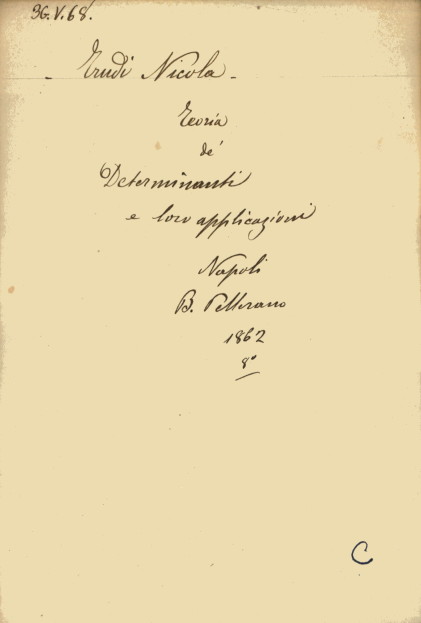 36.V.68.
Trudi Nicola
Teoria
de'
Determinanti
e loro applicazioni
Napoli
B. Pellerano
1862
8°
C